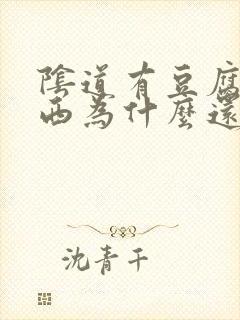 陰道有豆腐
西為什麼還
沈青千